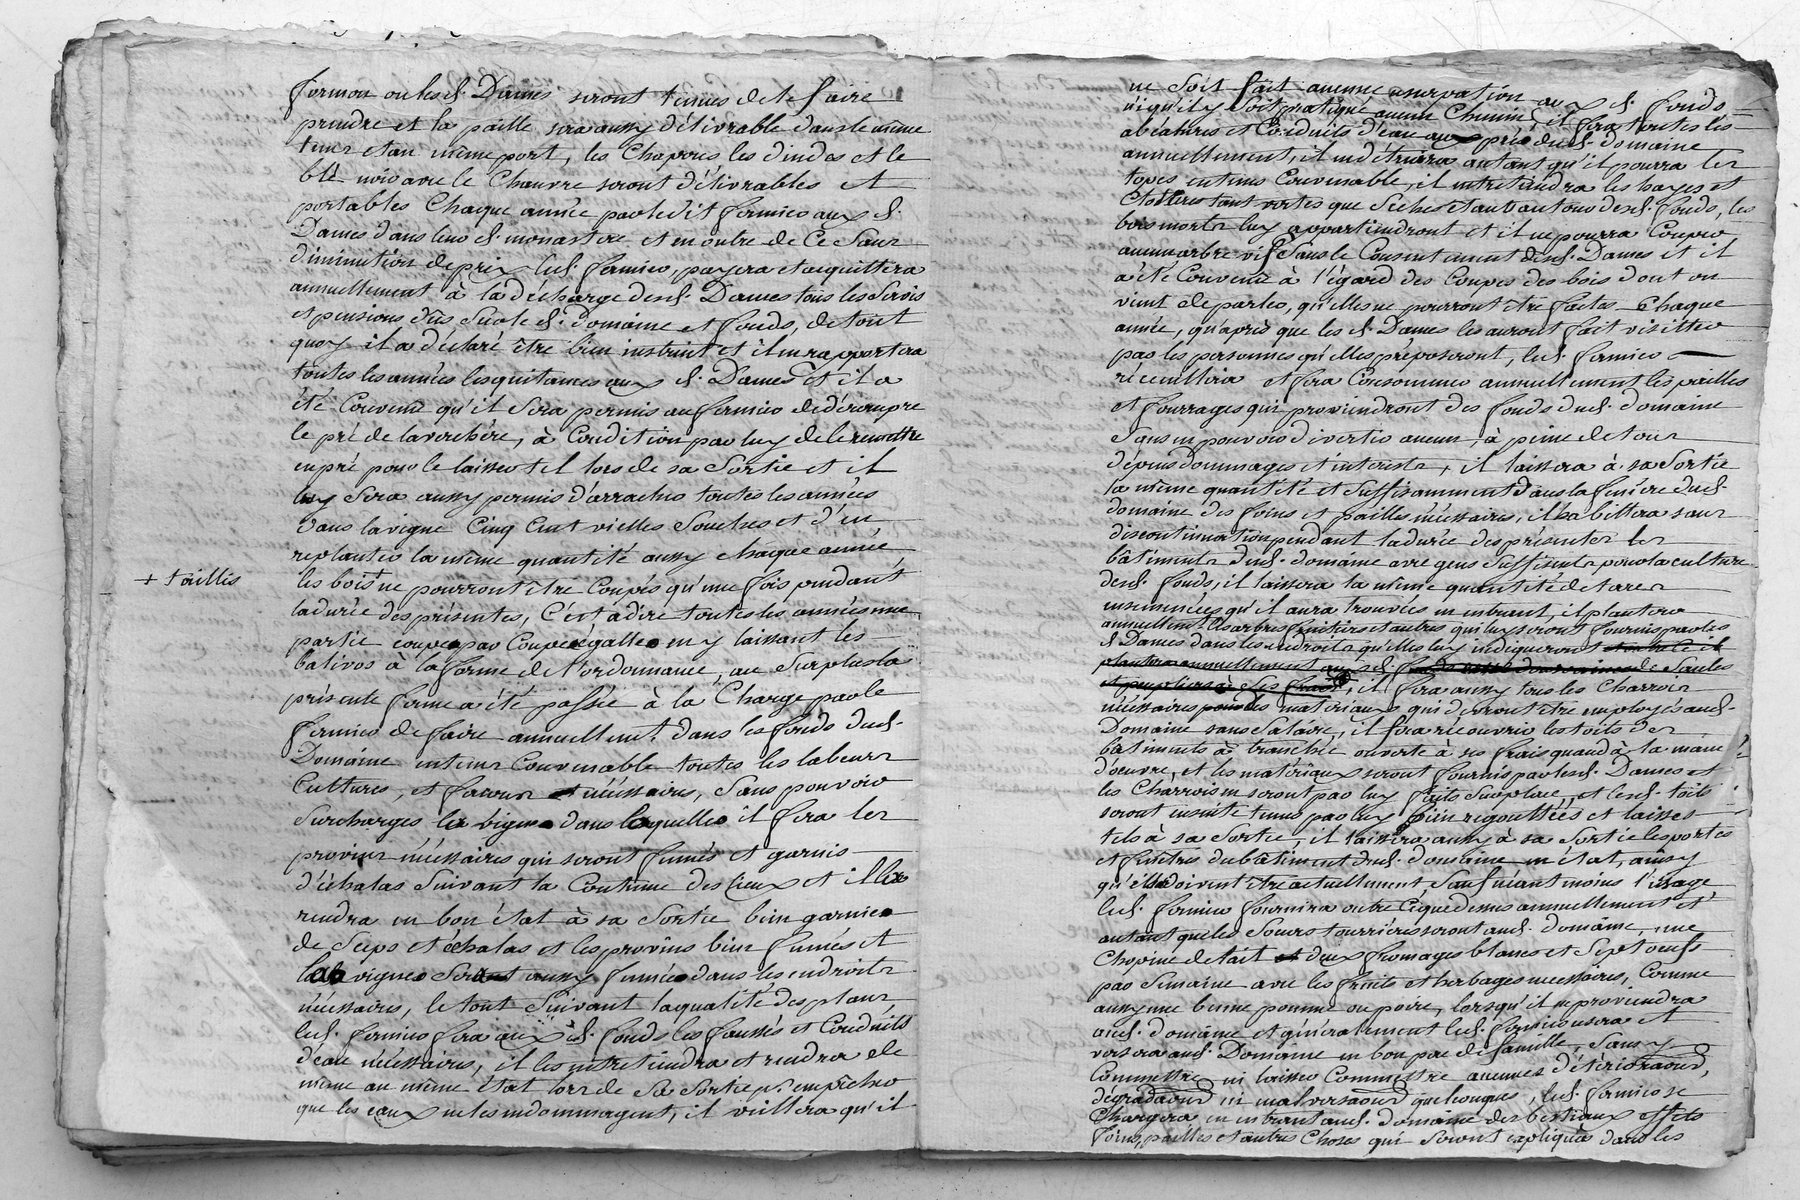 fermou ou lesd. Dames seront tenues de le faire
prendre et la paille sera aussy délivrable dans le même
tems et au même port, les Chapons les dindes et le
blé noir avec le Chanvre seront délivrables et
portables Chaque année par ledit fermier aux d.
Dames dans leur d. monastere et en outre de Ce Sans
diminution de prix led. fermier, payera et acquittera
annuellement à la décharge desd. Dames tous les Servis
et pensions dûs Sur led. domaine et fonds, de tout
quoy il a déclaré être bien instruit et il en raportera
toutes les années les quitances aux d. Dames et il a
été Convenu qu'il Sera permis au fermier de dérompre
le pré de la verchère, à Condition par luy de le remettre
en pré pour le laisser tel lors de sa Sortie et il
luy Sera aussy permis d'arracher toutes les années
dans la vigne Cinq Cent vielles Souches et d'en
replanter la même quantité aussy chaque année
les bois+ ne pourront être Coupés qu'une fois pendant
+ taillis
la durée des présentes, C'est à dire toutes les années une
partie coupe par Coupe egalle en y laissant les
balivos à la forme de l'ordonnance, au Surplus la
présente ferme a été passée à la Charge par le
fermier de faire annuellement dans les fonds dud.
Domaine en tems Convenable toutes les labeurs
Cultures, et façons nécéssaires, Sans pouvoir
Surcharger la vigne dans laquelle il fera les
provins nécéssaires qui seront fumés et garnis
d'échalas Suivant la Coutume des lieux et il la
rendra en bon état à sa Sortie bien garnie
de Seeps et échalas et les provins bien fumés et
la vigne Sera aussy fumée dans les endroits
nécéssaires, le tout Suivant la qualité des plans
led. fermier fera aux d. fonds les faussés et Conduits
d'eau nécéssaires, il les entretiendra et rendra de
même au même état lors de Sa Sortie pr. empêcher
que les eaux ne les indommagent, il veillera qu'il
ne Soit fait aucune usurpation aux d. fonds
n'y qu'il y Soit pratiqué aucun Chemin, et fera toutes les
abéalures et Conduits d'eau aux prés dud. domaine
annuellement, il en détruira autant qu'il pourra les
topes en tems Convenable, il entretiendra les hayes et
Clôtures tant vertes que Seches etant autour desd. fonds, les
bois morts luy appartiendront et il ne pourra Couper
aucun arbre vif Sans le Consentement desd. Dames et il
a été Convenu à l'égard des Coupes des bois dont on
vient de parler, qu'elles ne pourront être faites Chaque
année, qu'après que les d. Dames les auront fait visitter
par les personnes qu'elles préposeront, led. fermier
récceuillira et fera Consommer annuellement les pailles
et fourrages qui proviendront des fonds dud. domaine
Sans en pouvoir divertir aucun, à peine de tous
dépens dommages et interests, il laissera à sa Sortie
la même quantité et Suffisamment dans la feniére dud.
domaine des foins et pailles nécéssaires, il habittera sans
discontinuation pendant la durée des présentes les
bâtiments dud. domaine avec gens Suffisents pour la culture
desd. fonds, il laissera la même quantité de terres
ensemencées qu'il aura trouvées en entrant, il plantera
annuellement les arbres fruitiers et autres qui luy seront fournis par les
d. Dames dans les endroits qu'elles luy indiqueront
plantera annuellement aux d.
et peupliers à Ses frais, il fera aussy tous les Charrois
nécéssaires pour les matériaux qui devront être employés aud.
Domaine sans Salaire, il fera récouvrir les toits des
bâtiments à tranchée ouverte à ses frais quand à la main
d'oeuvre, et les matériaux seront fournis par lesd. Dames et
les Charrois en seront par luy faits Sur place, et lesd. toits
seront ensuite tenus par luy bien regouttées et laissés
tels à sa Sortie, il laissera aussy à sa Sortie les portes
et fenêtres du bâtiment dud. domaine en état, ainsy
qu'elles doivent être actuellement, Sauf néant moins l'usage
led. fermier fournira outre Ce que dessus annuellement et
autant que les Soeurs tourriéres seront aud. domaine, une
Chopine de lait deux fromages blancs et Sept oeufs
par Semaine avec les fruits et herbages necessaires, Comme
aussy une benne pomme ou poire, lorsqu'il en proviendra
aud. domaine et généralement led. fermier usera et
versera aud. Domaine en bon pere de famille, Sans y
Commettre ni laisser Commettre aucunes détériora[ti]ons,
dégradaons ni malversaons quelconques, led. fermier se
Chargera en entrant aud. domaine des bestiaux effets
foins, pailles et autres Choses qui Seront expliquées dans les